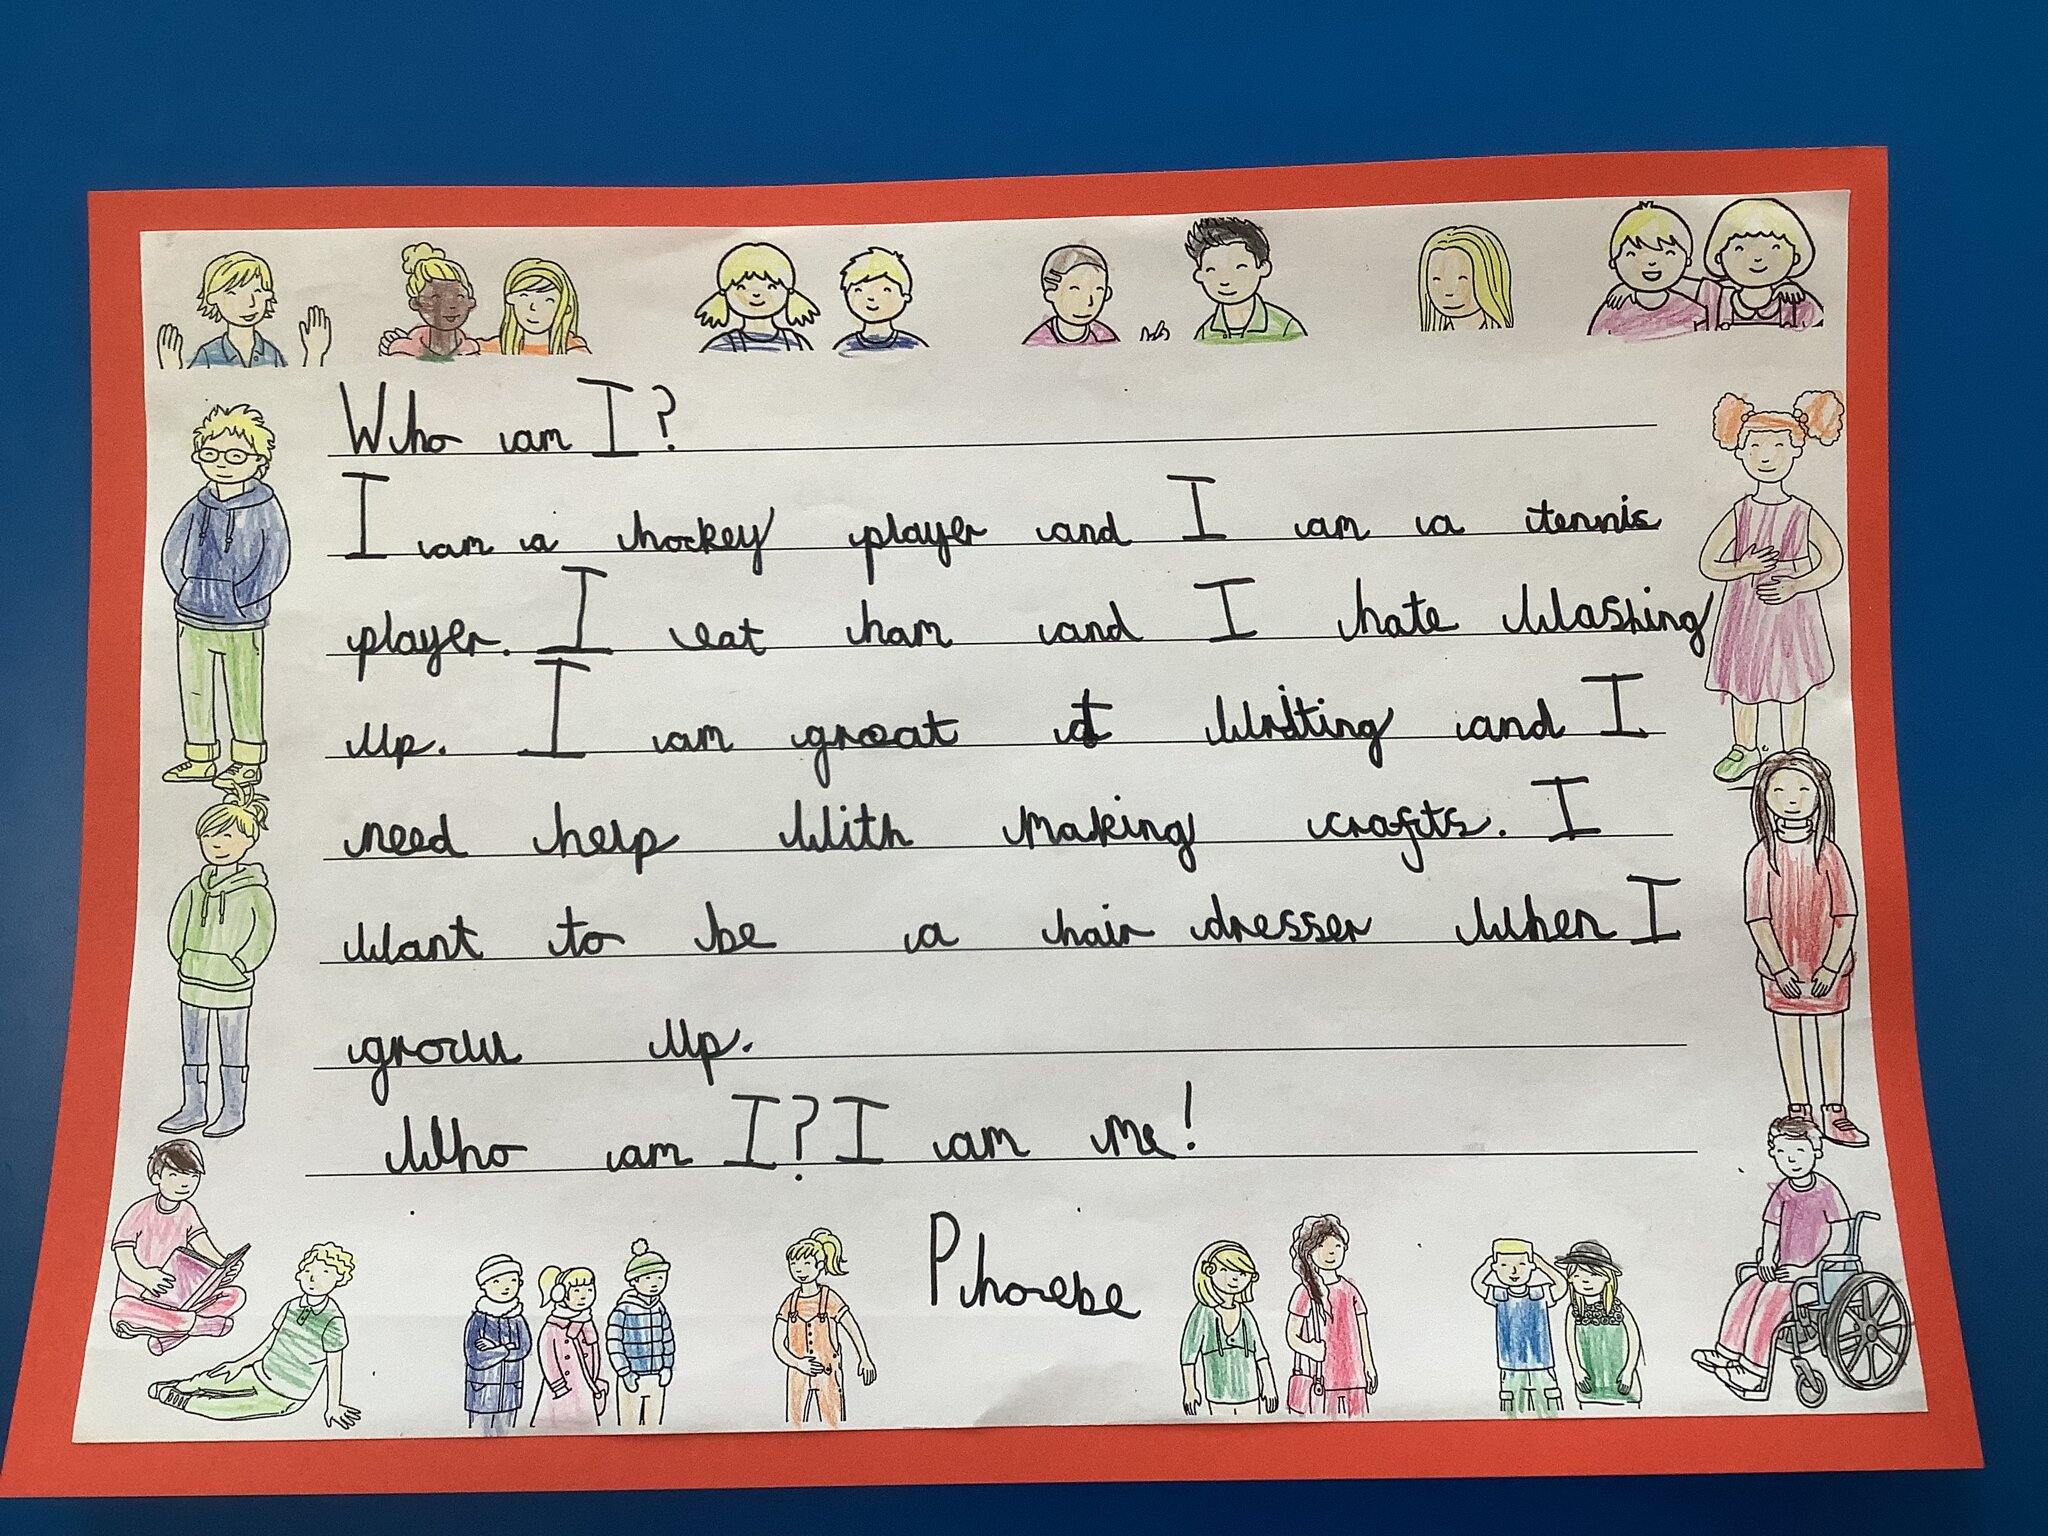 Who am I?
I am a hockey player and I am a tennis
player. I eat ham and I hate washing
up. I am great at writing and I
need help with making crafts. I
want to be a hair dresser when I
grow up.
Who am I? I am me!
Phoebe